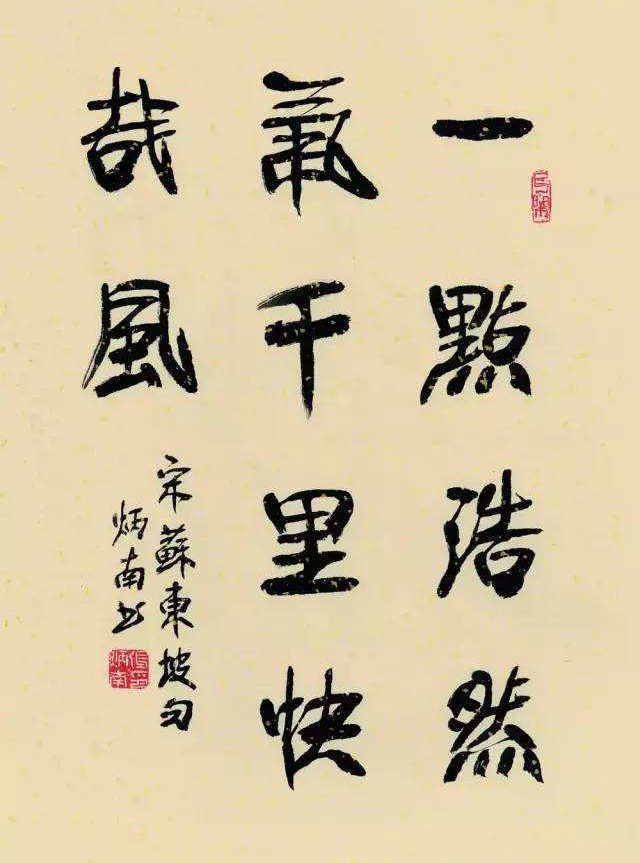 一點浩然
氣千里快
哉風
宋蘇東坡句
炳南书